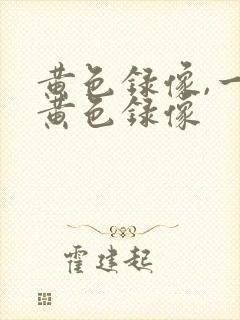 黄色录像,一
黄色录像
霍建起